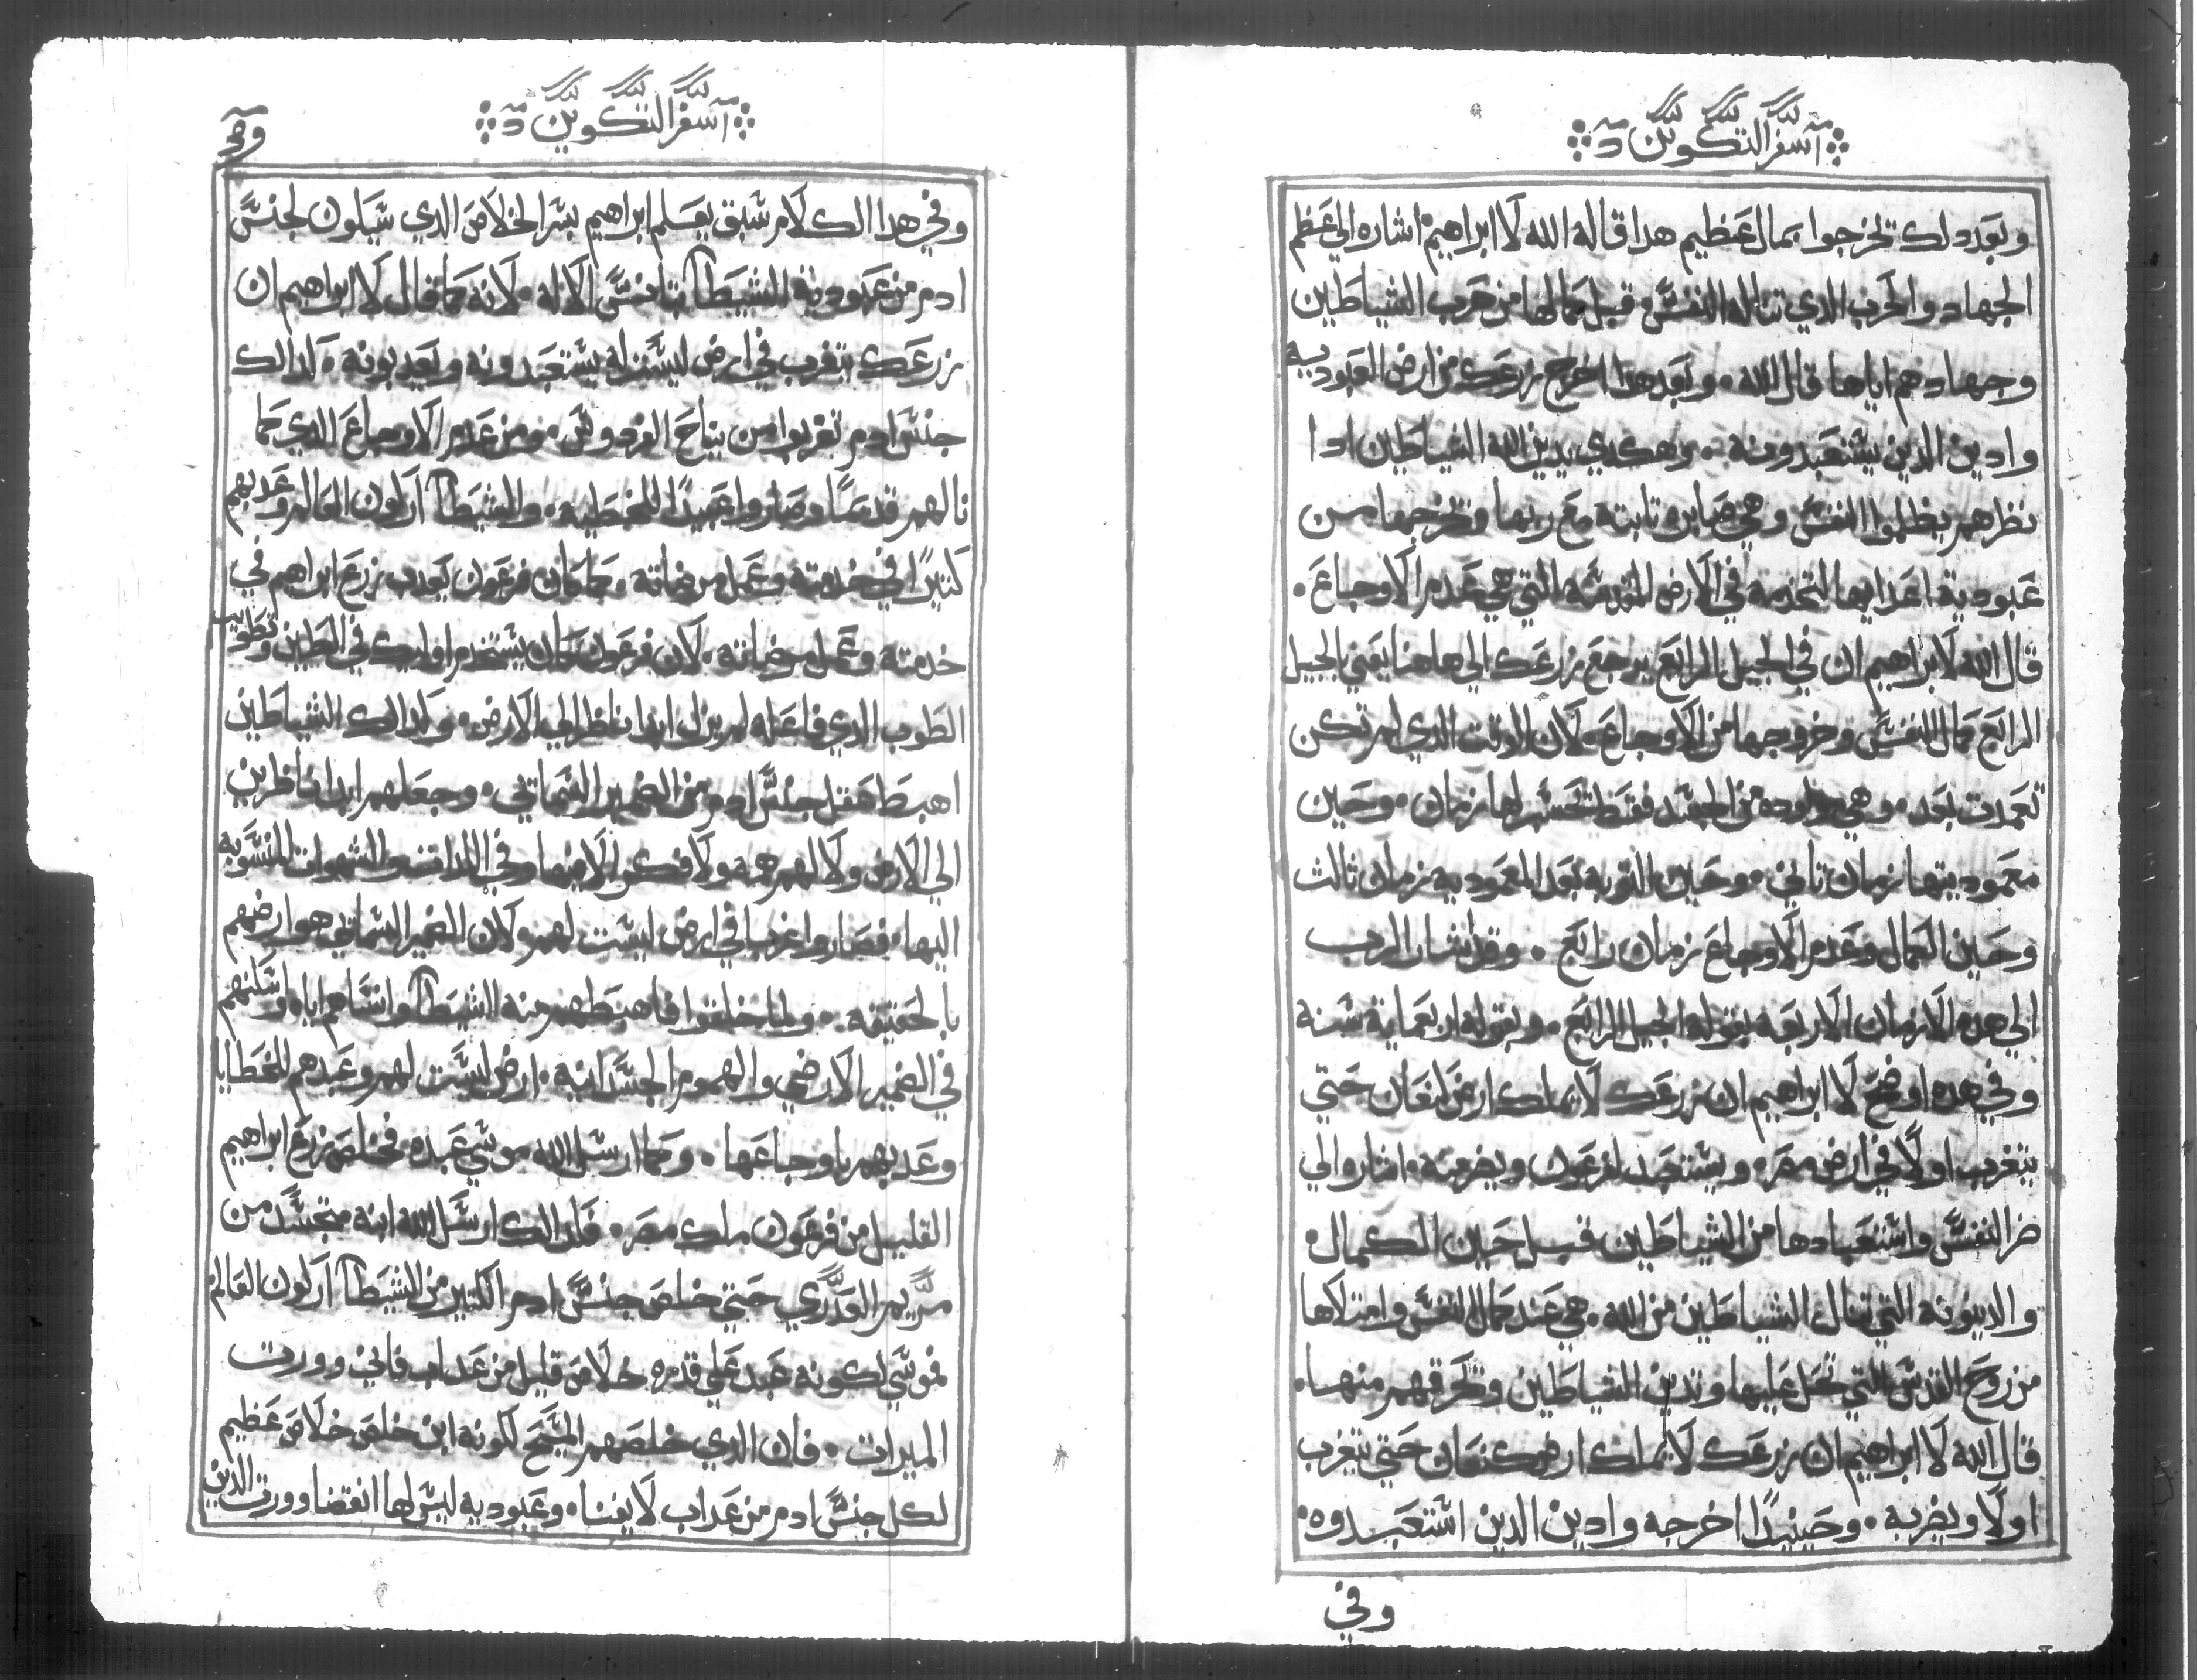 سفر التكوين
وبعد دلك تخرجوا بمال عظيم هدا قاله الله لابراهيم اشاره الي عظم
الجهاد والحرب الدي تناله النفس قبل كمالها من حرب الشياطين
وجهادهم اياها قال الله. وبعد هدا اخرج زرعك من ارض العبوديه
وادين الدين يستعبدونه. وهكدي يدين الله الشياطين ادا
نظرهم يظلموا النفس وهي صابره تابته مع ربها ويخرجها من
عبودية اعدايها لتخدمه في الارض المقدسه التي هي عدم الاوجاع.
قال الله لابراهيم ان في الجيل الرابع يرجع زرعك الي هاهنا يعني بالجيل
الرابع كمال النفس وخروجها من الاوجاع. لان الوقت الدي لم تكن
تعمدت بعد. وهي مولوده من الجسد فقط تحسب لها زمان. وحين
معموديتها زمان تاني. وحين التوبه بعد المعموديه زمان تالت
وحين الكمال وعدم الاوجاع زمان رابع. وقد اشار الرب
الي هده الازمان الاربعه بقوله الجيل الرابع. وبقوله اربعماية سنه
وفي هده اوضح لابراهيم ان زرعك لا يملك ارض كنعان حتي
يتغرب اولاً في ارض مصر. ويستعبد لفرعون ويضر منه. اشار الي
ضر النفس واستعبادها من الشياطين قبل حين الكمال.
والدينونه التي تنال الشياطين من الله. هي عند كمال النفس وامتلاها
من روح القدس التي تحل عليها وتدين الشياطين وتحرقهم منها.
قال الله لابراهيم ان زرعك لا يملك ارض كنعان حتي يتغرب
اولا ويضر به. وحينيداً اخرجه وادين الدين استعبدوه.
وفي
سفر التكوين
وفي هدا الكلام سبق يعلم ابراهيم بسر الخلاص الدي سيكون لجنس
ادم من عبودية الشيطان بتانس الاله. لانه كما قال لابراهيم ان
زرعك يتغرب في ارض ليست له يستعبدونه ويعدبونه. كدالك
جنس ادم تغربوا من نياح الفردوس. ومن عدم الاوجاع الدي كما
نالهم قدماً وصاروا عبيداً للخطيه. والشيطان اركون العالم وعدبهم
كتيراً في خدمته وعمل مرضاته. كما كان فرعون يعدب زرع ابراهيم في
خدمته وعمل مرضاته. لان فرعون كان يستخدم اوليك في الطين وتطويب
الطوب الدي فاعله لم يزل ابدا ناظر الي الارض. وكدالك الشياطين
اهبط عقل جنس ادم من الضمير السماني. وجعلهم ابدا ناظرين
الي الارض ولا لهم همه ولا فكر الا فيها وفي اللدات والشهوات المنسوبه
اليها. فصاروا غربا في ارض ليست لهم. ولان الضمير السماني هو ارضهم
بالحقيقه. ولها خلقوا فاهبطهم منه الشيطان وانساهم اياه واسكنهم
في الضمير الارضي والهموم الجسدانيه. ارض ليست لهم وعبدهم للخطايا
وعدبهم باوجاعها. وكما ارسل الله موسي عبده فخلص زرع ابراهيم
القليل من فرعون ملك مصر. فكدالك ارسل الله ابنه متجسد من
مريم العدري حتي خلص جنس ادم الكتير من الشيطان اركون العالم
فموسي لكونه عبد علي قدره خلاص قليل من عداب فاني وورت
الميرات. فان الدي خلصهم المسيح لكونه ابن خلص خلاص عظيم
لكل جنس ادم من عداب لا يفنا. وعبوديه ليس لها انقضا وورت الدين